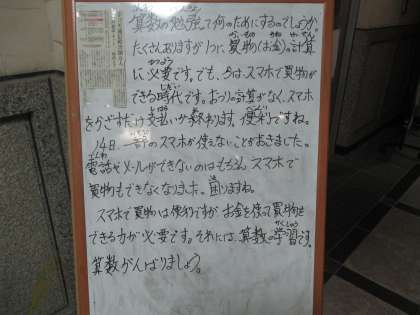 算数の勉強て何のためにするのでしょうか
たくさんありますが1つに、買物(お金)の計算
に必要です。でも、今はスマホで買物が
できる時代です。おつりの計算がなく、スマホ
をかざすだけ支払いが終わります。便利ですね。
14日、一部のスマホが使えないことがおきました。
電話やメールができないのはもちろん スマホで
買物もできなくなりました。困りますね。
スマホで買物は便利ですが お金を使って買物を
できる力が必要です。それには、算数の学習です。
算数がんばりましょう。